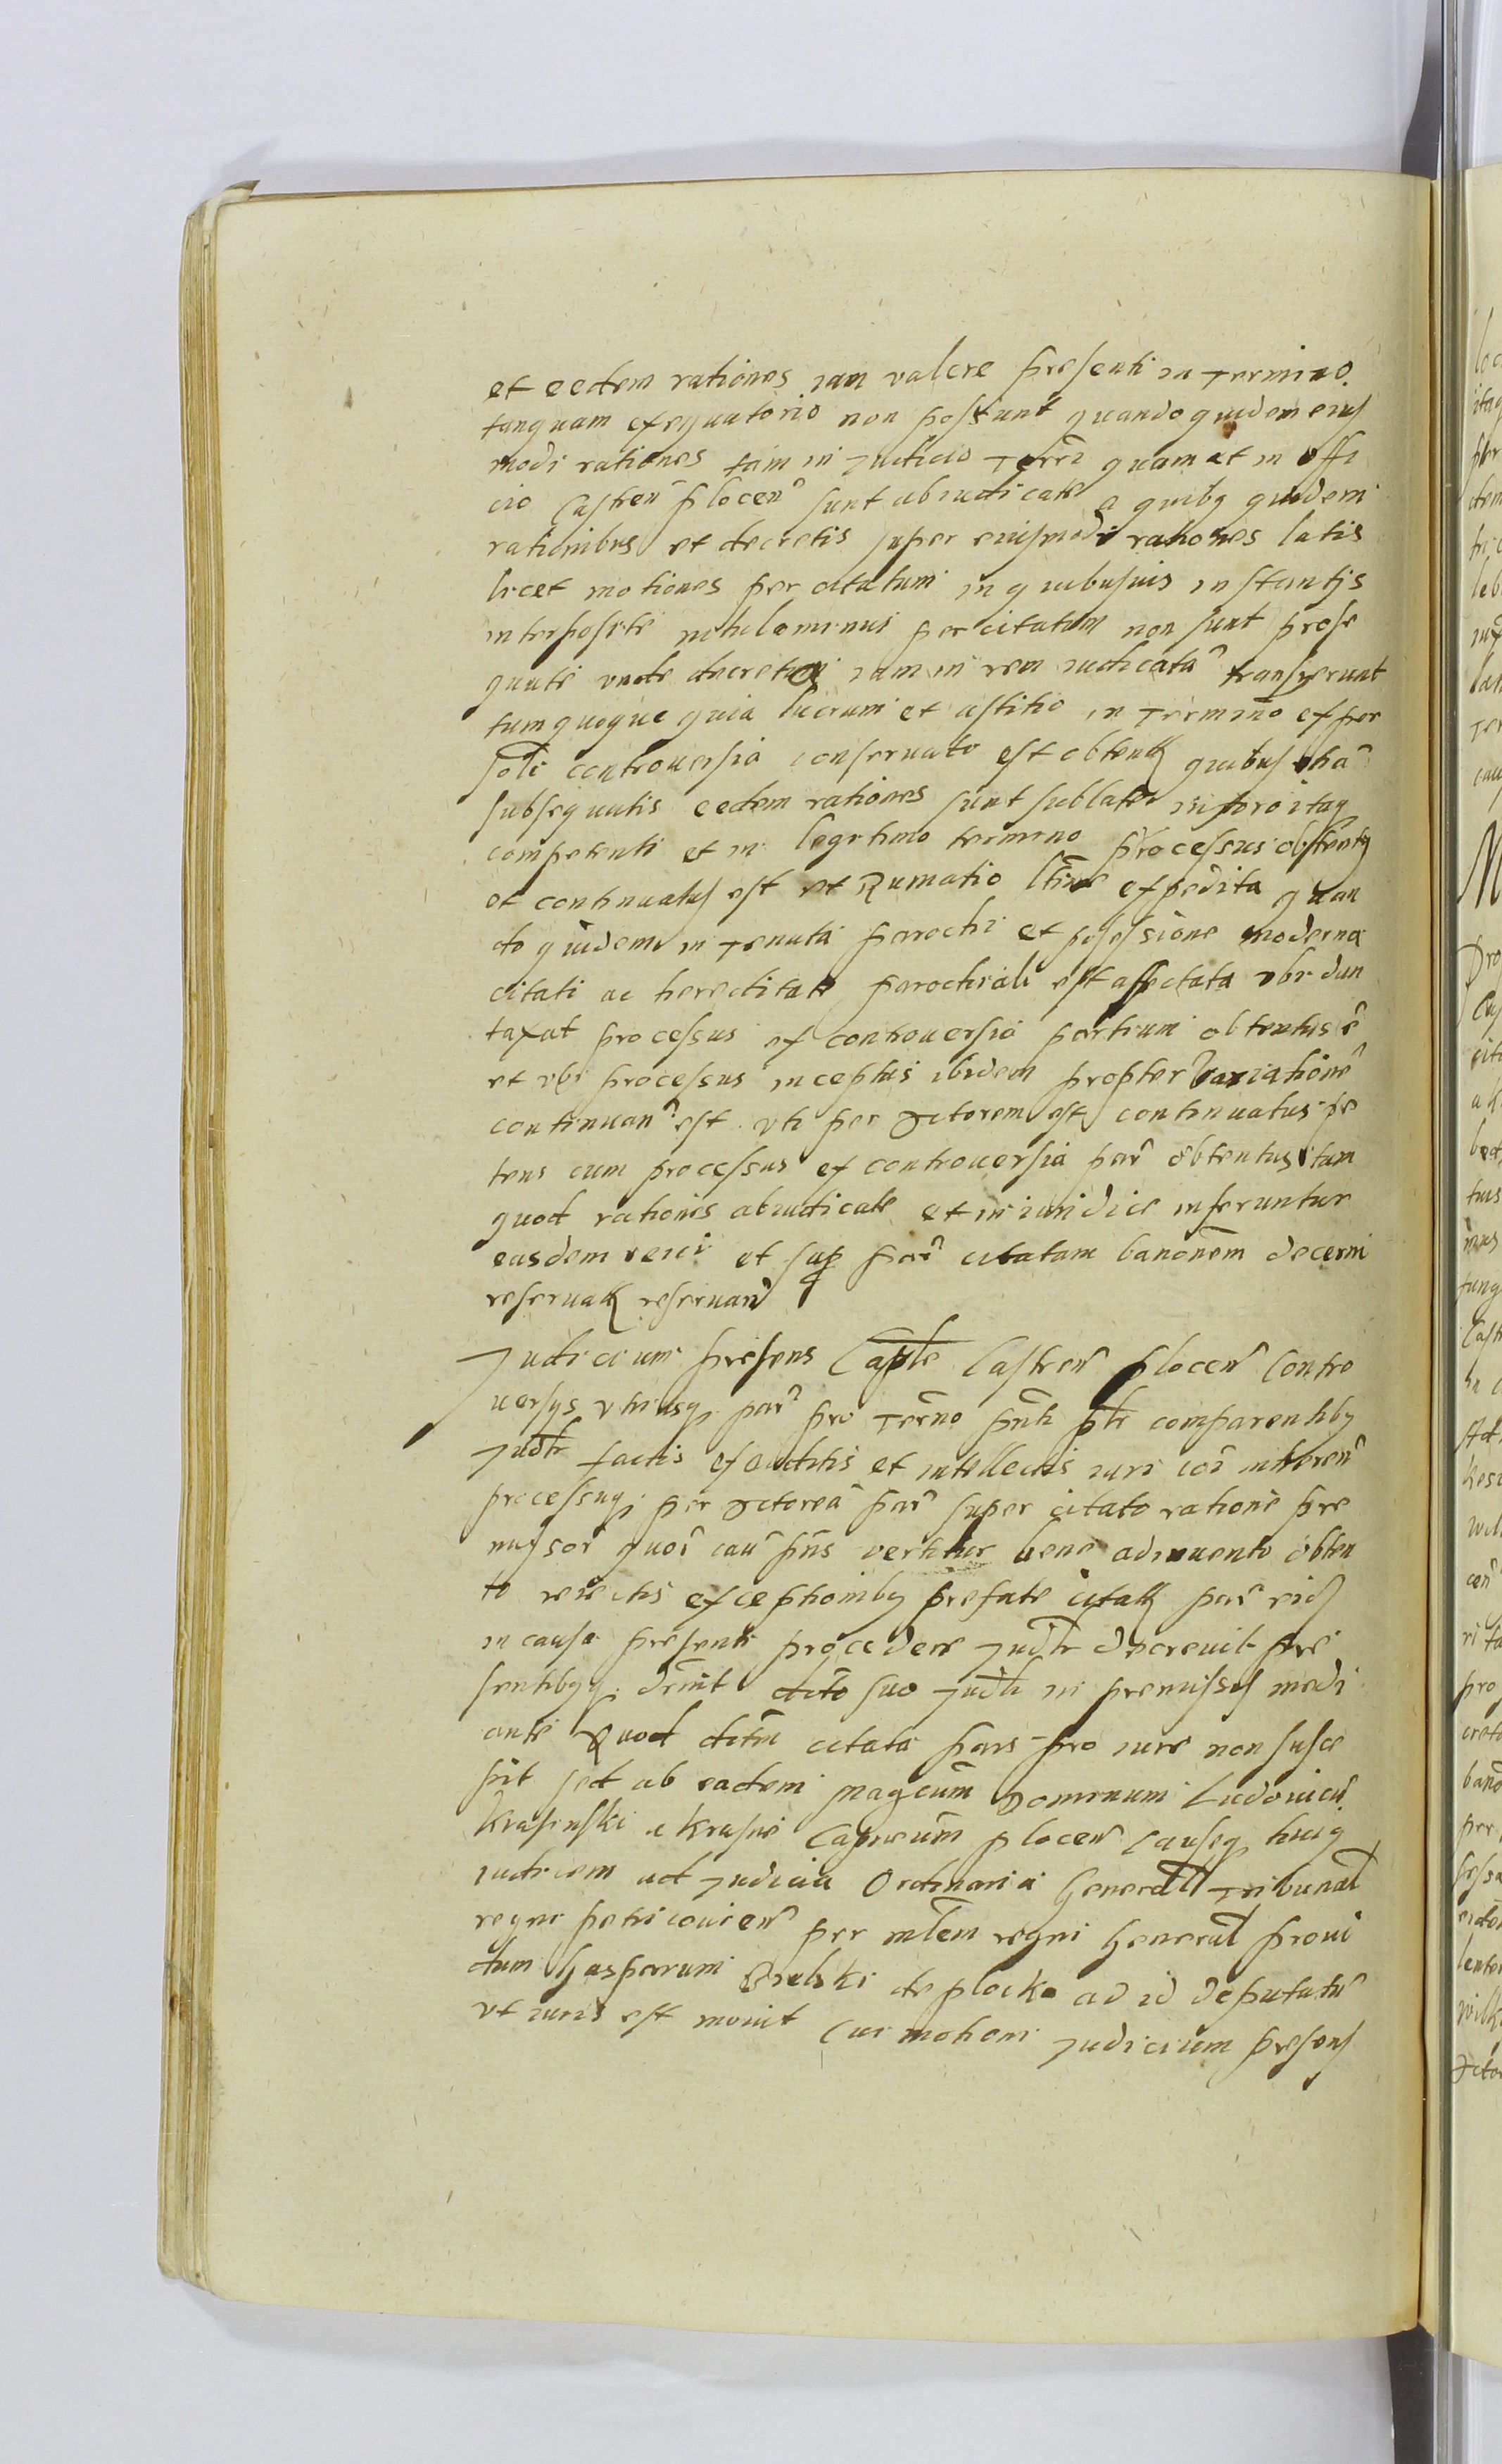 et eedem rationes iam valere presenti in Termino
tanquam exequutorio non possunt quando quidem eius
modi rationes tam in Judicio Terri quam et in offi
cio Castren plocen sunt abiudicate a quibus quidem
rationibus et decretis super eiusmodi rationes latis
licet motiones per citatum in quibusuis instantys
interposite nihilominus per citatum non sunt prose
quute vnde decreta iam in rem iudicata transyerunt
tumquoque quia lucrum et astitio in Termino ex per
controuersia conseruato est obtent quibus etia
subsequutis eedem rationes sunt sublate in foro itaq
competenti et in legitimo termino processus obtentus
et continuatus est et Rumatio expedita quan
do quidem in Tenuta parochi et possessione moderna
citati ac hereditate parochiali est affectata vbi dun
taxat processus ex controuersia partium obtentus e
et vbi processus inceptus ibidem propter variatione
continuan est vti per Actorem est continuatus pe
tens cum processus ex controuersia par obtentus tam
quod rationes abiudicate et iniuridice inferuntur
easdem reici et sup par citatam banonem decerni
reseruat reseruand
Judicium presens Caple Castren plocen Contro
uersys vtriusq par pro Termno pnti ptr comparentibus
Judtr factis exauditis et intellectis iuri coi inheren
processuq per Actorea par super citato ratione pre
missor quor cau pns vertitur bene adinuento obten
to reiectis exceptionibus prefate citat par
in causa presenti procedere Judtr decreuit pre
sentibusq dcreto suo Judtr in premissis medi
ante Quod dctm citata pars pro iure non susce
pit sed ab eadem Magcum Dominum Ludouicu
Krasinski a Krasne Capneum plocen Causeq huiq
iudicem ad Judicia Ordinaria General Tribunal
regni petricouien per mlem regni General proui
dum Gasparum Bielski de plocko ad id deputatu
vt iuris est mouit Cui motioni Judicium presens